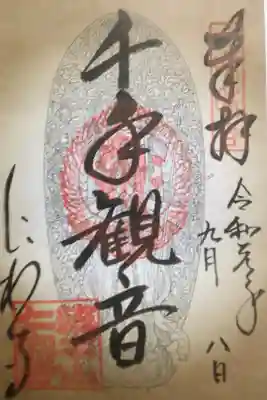 奉拝
令和元年
九月八日
千手観音